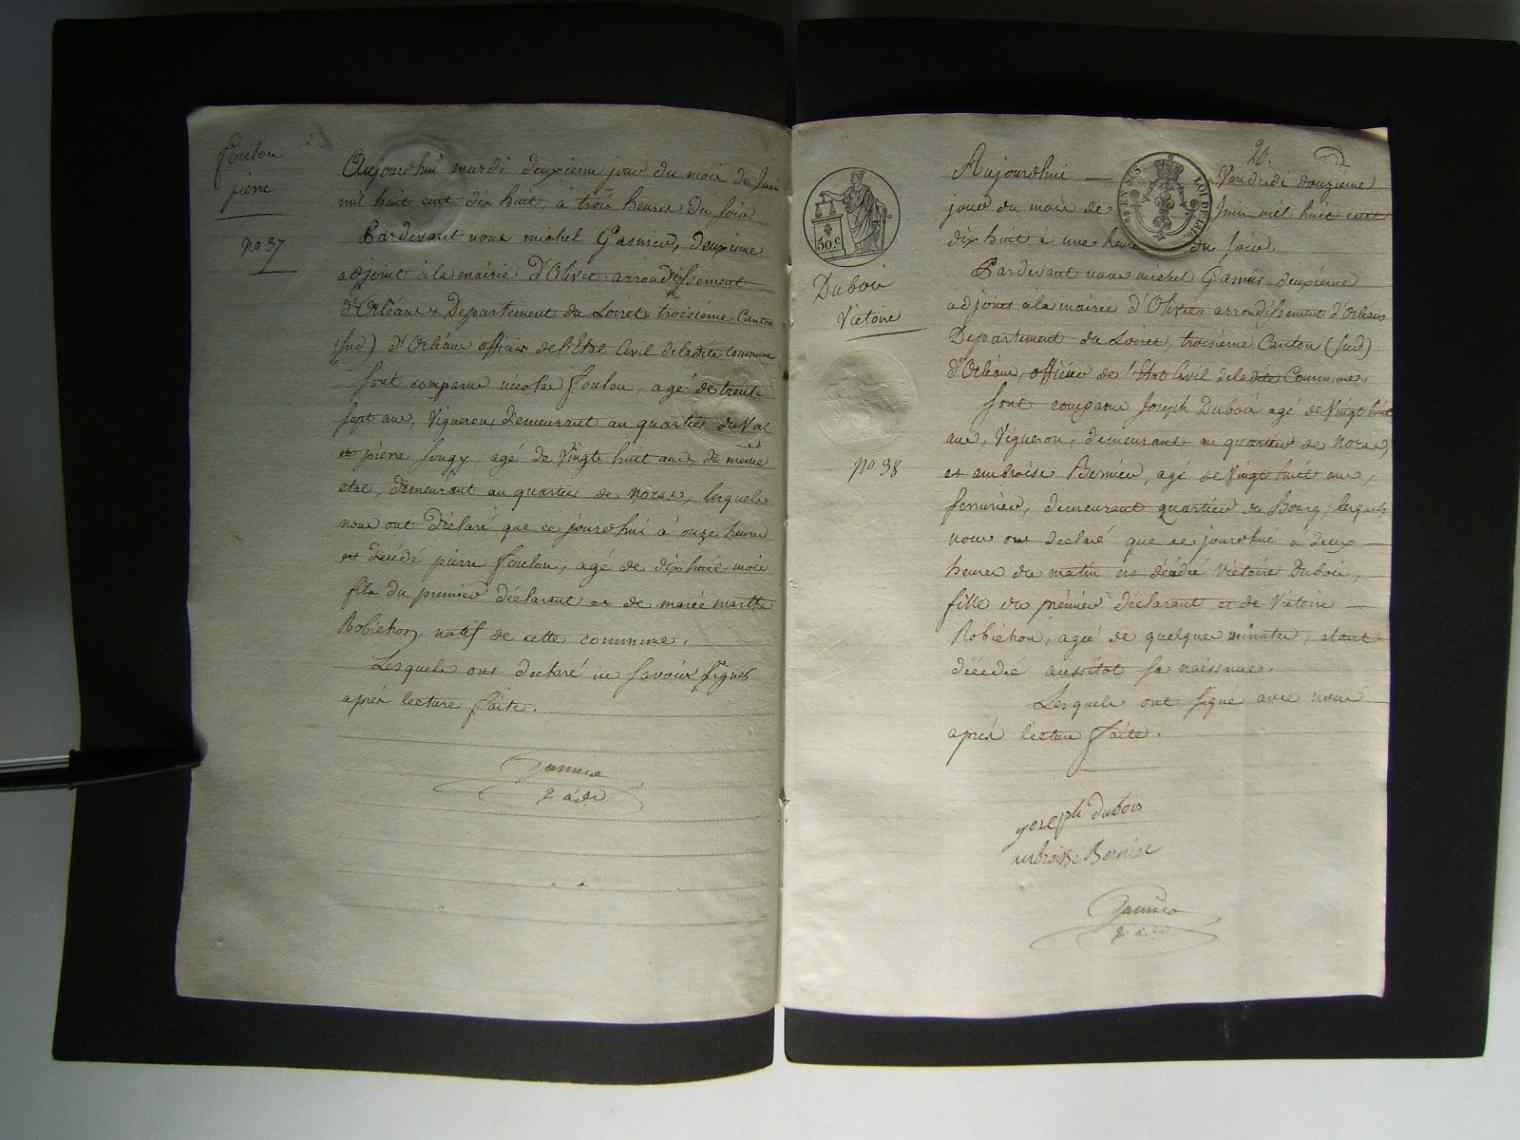 foulon
pierre
no 37
Aujourd'hui mardi deuxieme jour du mois de Juin
mil huit cent dix huit, à trois heures du soir
Pardevant nous michel Gasnier, deuxieme
adjoint à la mairie d'Olivet arrondissement
d'Orléans Departement du Loiret troisieme Canton
(sud) d'Orléans officier de l'Etat Civil de ladite commune
sont comparu nicolas foulon, agé de trente
sept ans, Vigneron, demeurant au quartier du Val
et pierre fougy agé de Vingt huit ans, de même
etat, demeurant au quartier de noras, lesquels
nous ont déclaré que ce jourd'hui à onze heures
est décédé pierre foulon, agé de dix huit mois
fils du premier déclarant et de marie marthe
Robichon, natif de cette commune.
Lesquels ont declaré ne savoir signer
après lecture faite.
Gasnier
2 adj
20.
50 c
Dubois
Victoire
no 38
Aujourdhui Vendredi douzieme
jour du mois de Juin mil huit cent
dix huit à une heure du soir.
Pardevant nous michel Gasnier deuxième
adjoint à la mairie d'Olivet arrondissement d'Orléans
Departement du Loiret, troisième Canton (sud)
d'Orléans, officier de l'Etat Civil de ladite Commune,
sont comparu Joseph Dubois agé de Vingt huit
ans, Vigneron, demeurant au quartier de noras,
et ambroise Bernier, agé de Vingt huit ans,
serrurier, demeurant quartier du Bourg, lesquels
nous ont declaré que ce jourdhui a deux
heures du matin est décédé Victoire Dubois,
fille du premier déclarant et de Victoire
Robichon, agée de quelques minutes, etant
décédé aussitôt sa naissance.
Lesquels ont signé avec nous
après lecture faite.
joseph dubois
anbroise Bernier
Gasnier
2 adj